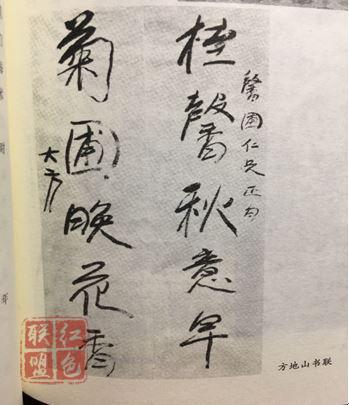 桂馨秋意早
馨圃仁兄正句
菊圃晚花香
大方
方地山书联
红色
联盟